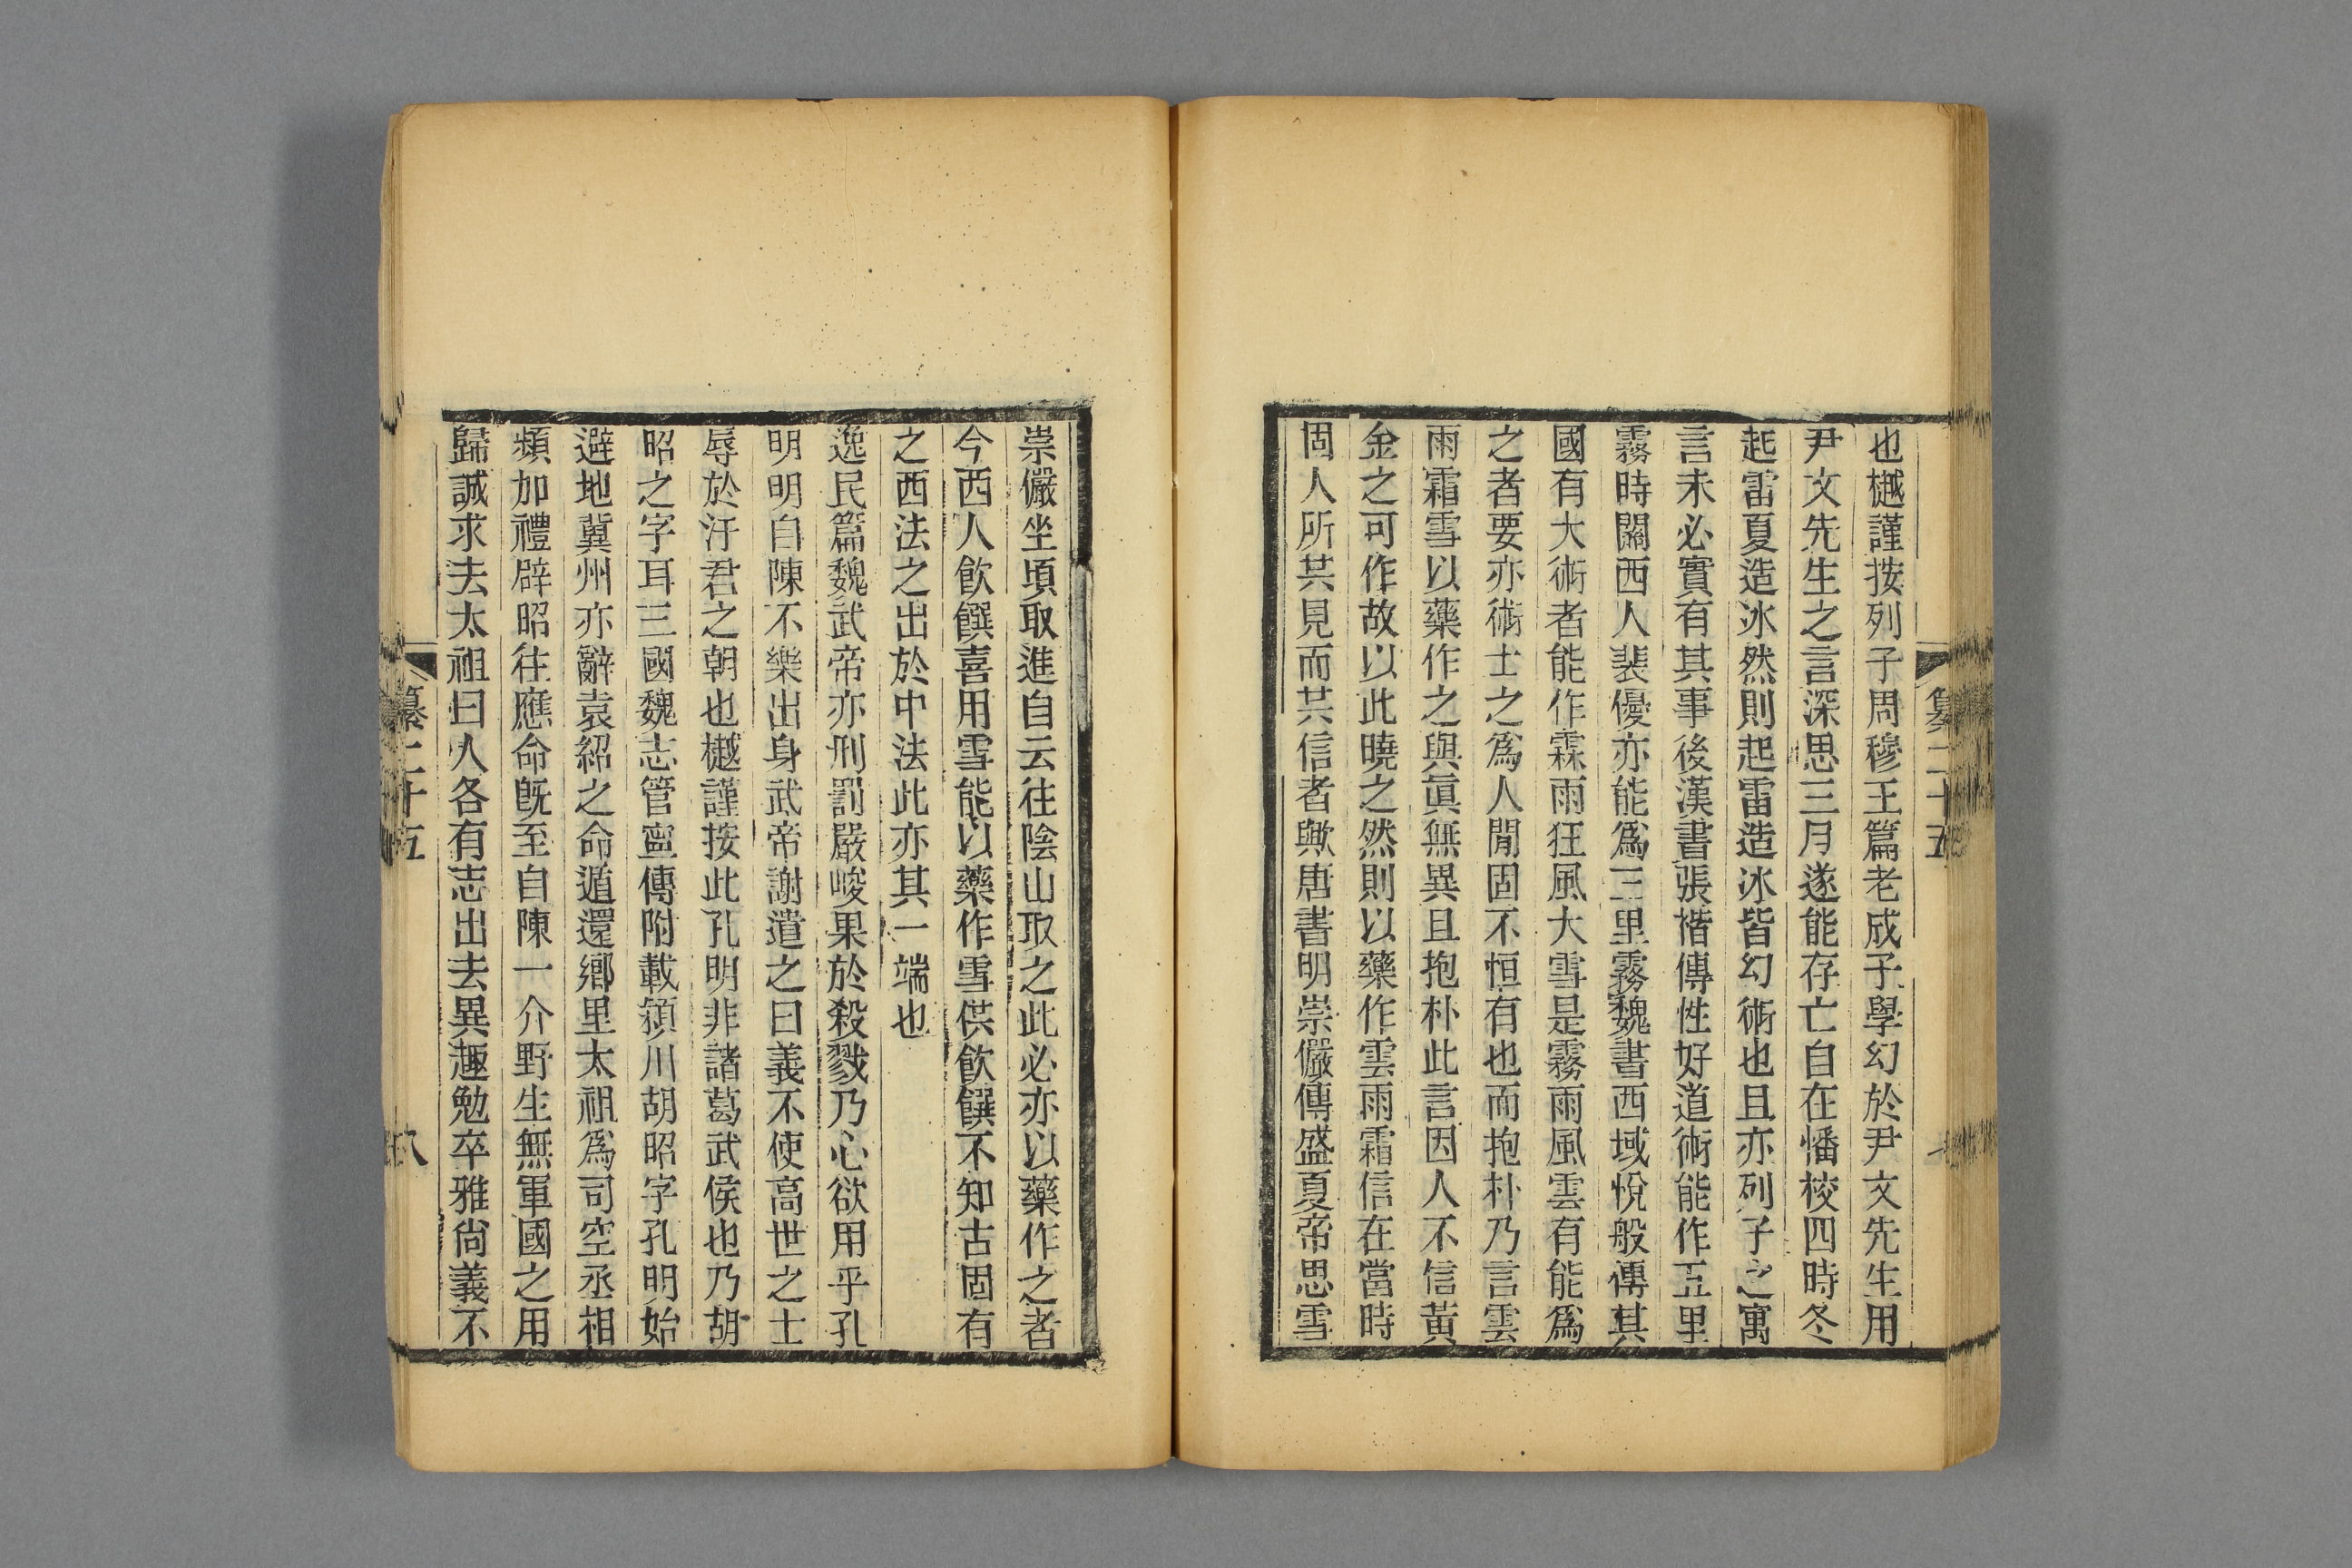 也樾謹按列子周穆王篇老成子學幻於尹文先生用
尹文先生之言深思三月遂能存亡自在憣校四時冬
起雷夏造冰然則起雷造冰皆幻術也且亦列子之寓
言未必實有其事後漢書張楷傳性好道術能作五里
霧時關西人裴優亦能爲三里霧魏書西域悅般傳其
國有大術者能作霖雨狂風大雪是霧雨風雲有能爲
之者要亦術士之爲人閒固不恒有也而抱朴乃言雲
雨霜雪以藥作之與眞無異且抱朴此言因人不信黃
金之可作故以此曉之然則以藥作雲雨霜信在當時
固人所共見而共信者歟唐書明崇儼傳盛夏帝思雪
崇儼坐頃取進自云往陰山取之此必亦以藥作之者
今西人飲饌喜用雪能以藥作雪供飲饌不知古固有
之西法之出於中法此亦其一端也
逸民篇魏武帝亦刑罰嚴峻果於殺戮乃心欲用乎孔
明明自陳不樂出身武帝謝遣之曰義不使高世之士
辱於汙君之朝也樾謹按此孔明非諸葛武侯也乃胡
昭之字耳三國魏志管寧傳附載潁川胡昭字孔明始
避地冀州亦辭袁紹之命遁還鄉里太祖爲司空丞相
頻加禮辟昭往應命旣至自陳一介野生無軍國之用
歸誠求去太祖曰人各有志出去異趣勉卒雅尙義不
纂二十五
八